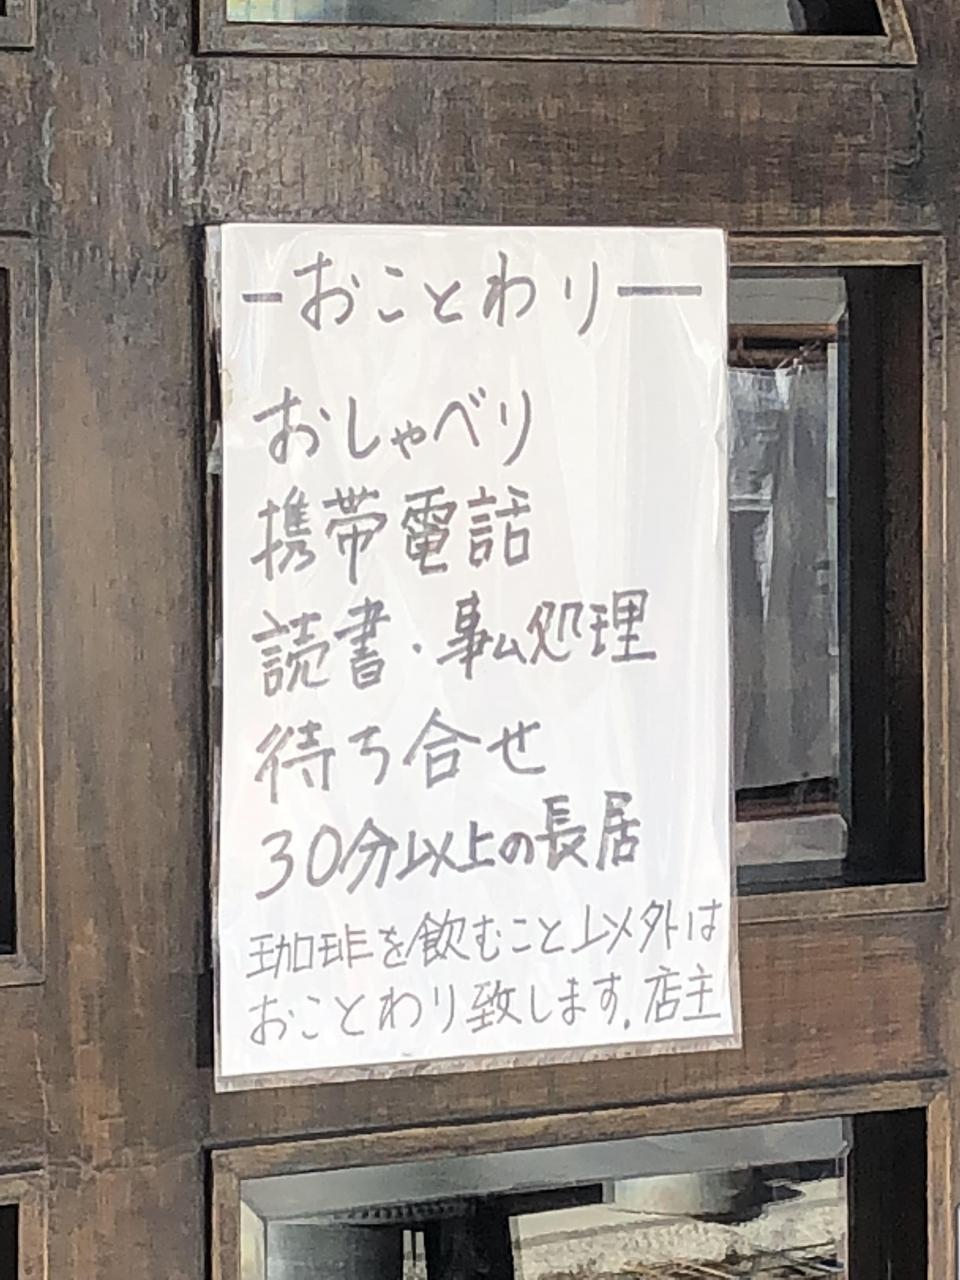 ーおことわりー
おしゃべり
携帯電話
読書・事ム処理
待ち合せ
30分以上の長居
珈琲を飲むこと以外は
おことわり致します。店主